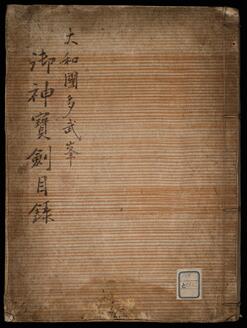 大和國多武峯
御神寶劍目錄